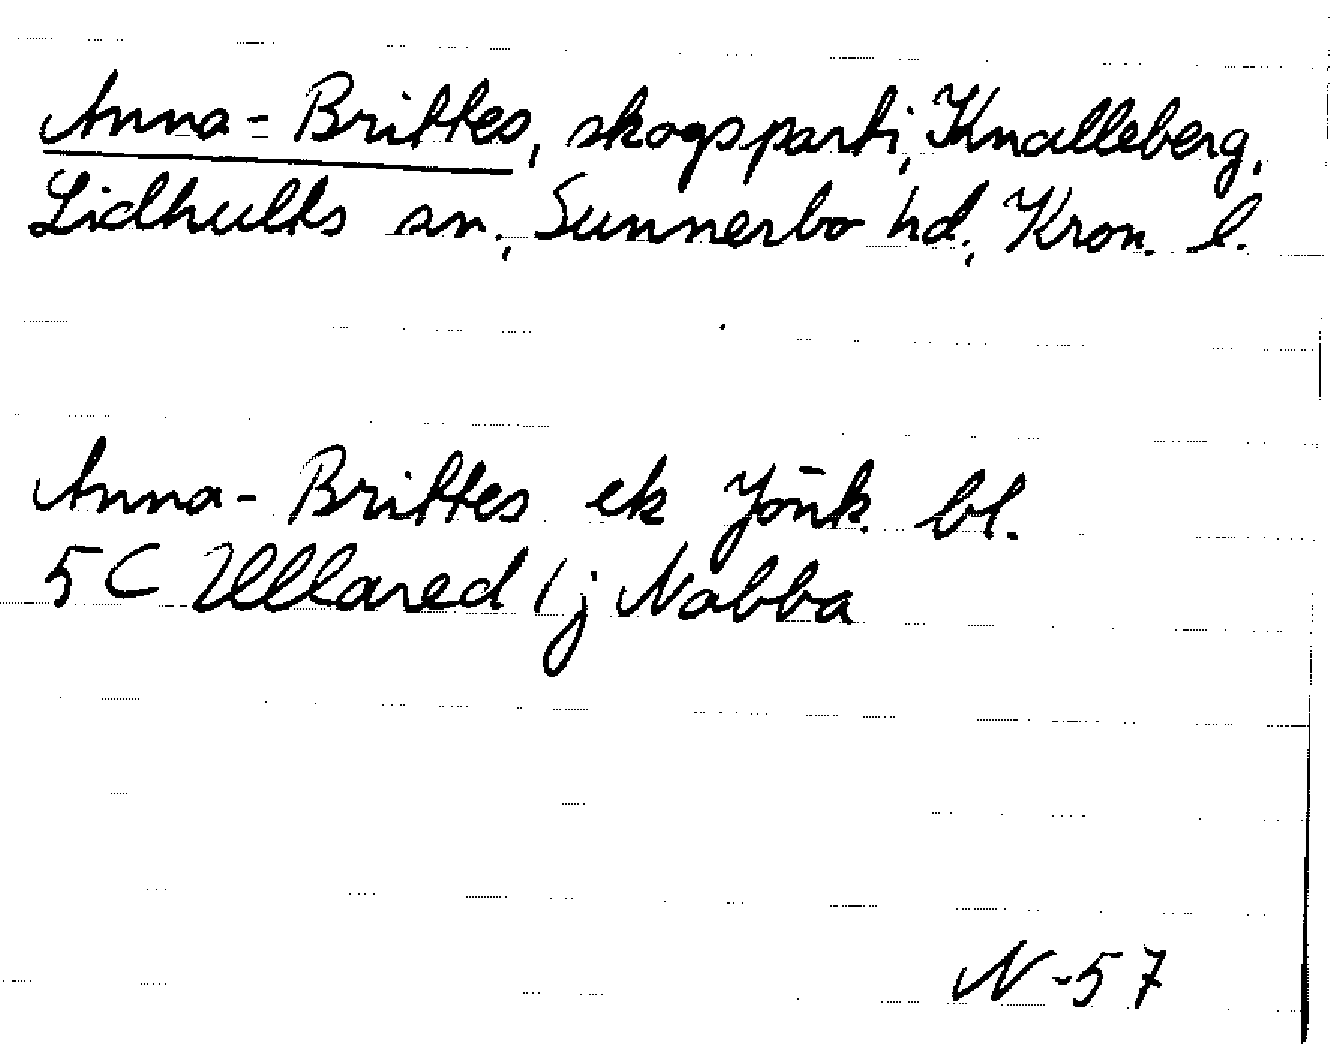 Anna-Brittes, skogsparti, Knalleberg,
Lidhults sn., Sunnerbo hd., Kron. l.
Anna-Brittes ek Jönk. bl.
5C Ullared 1j Nabba
N-57